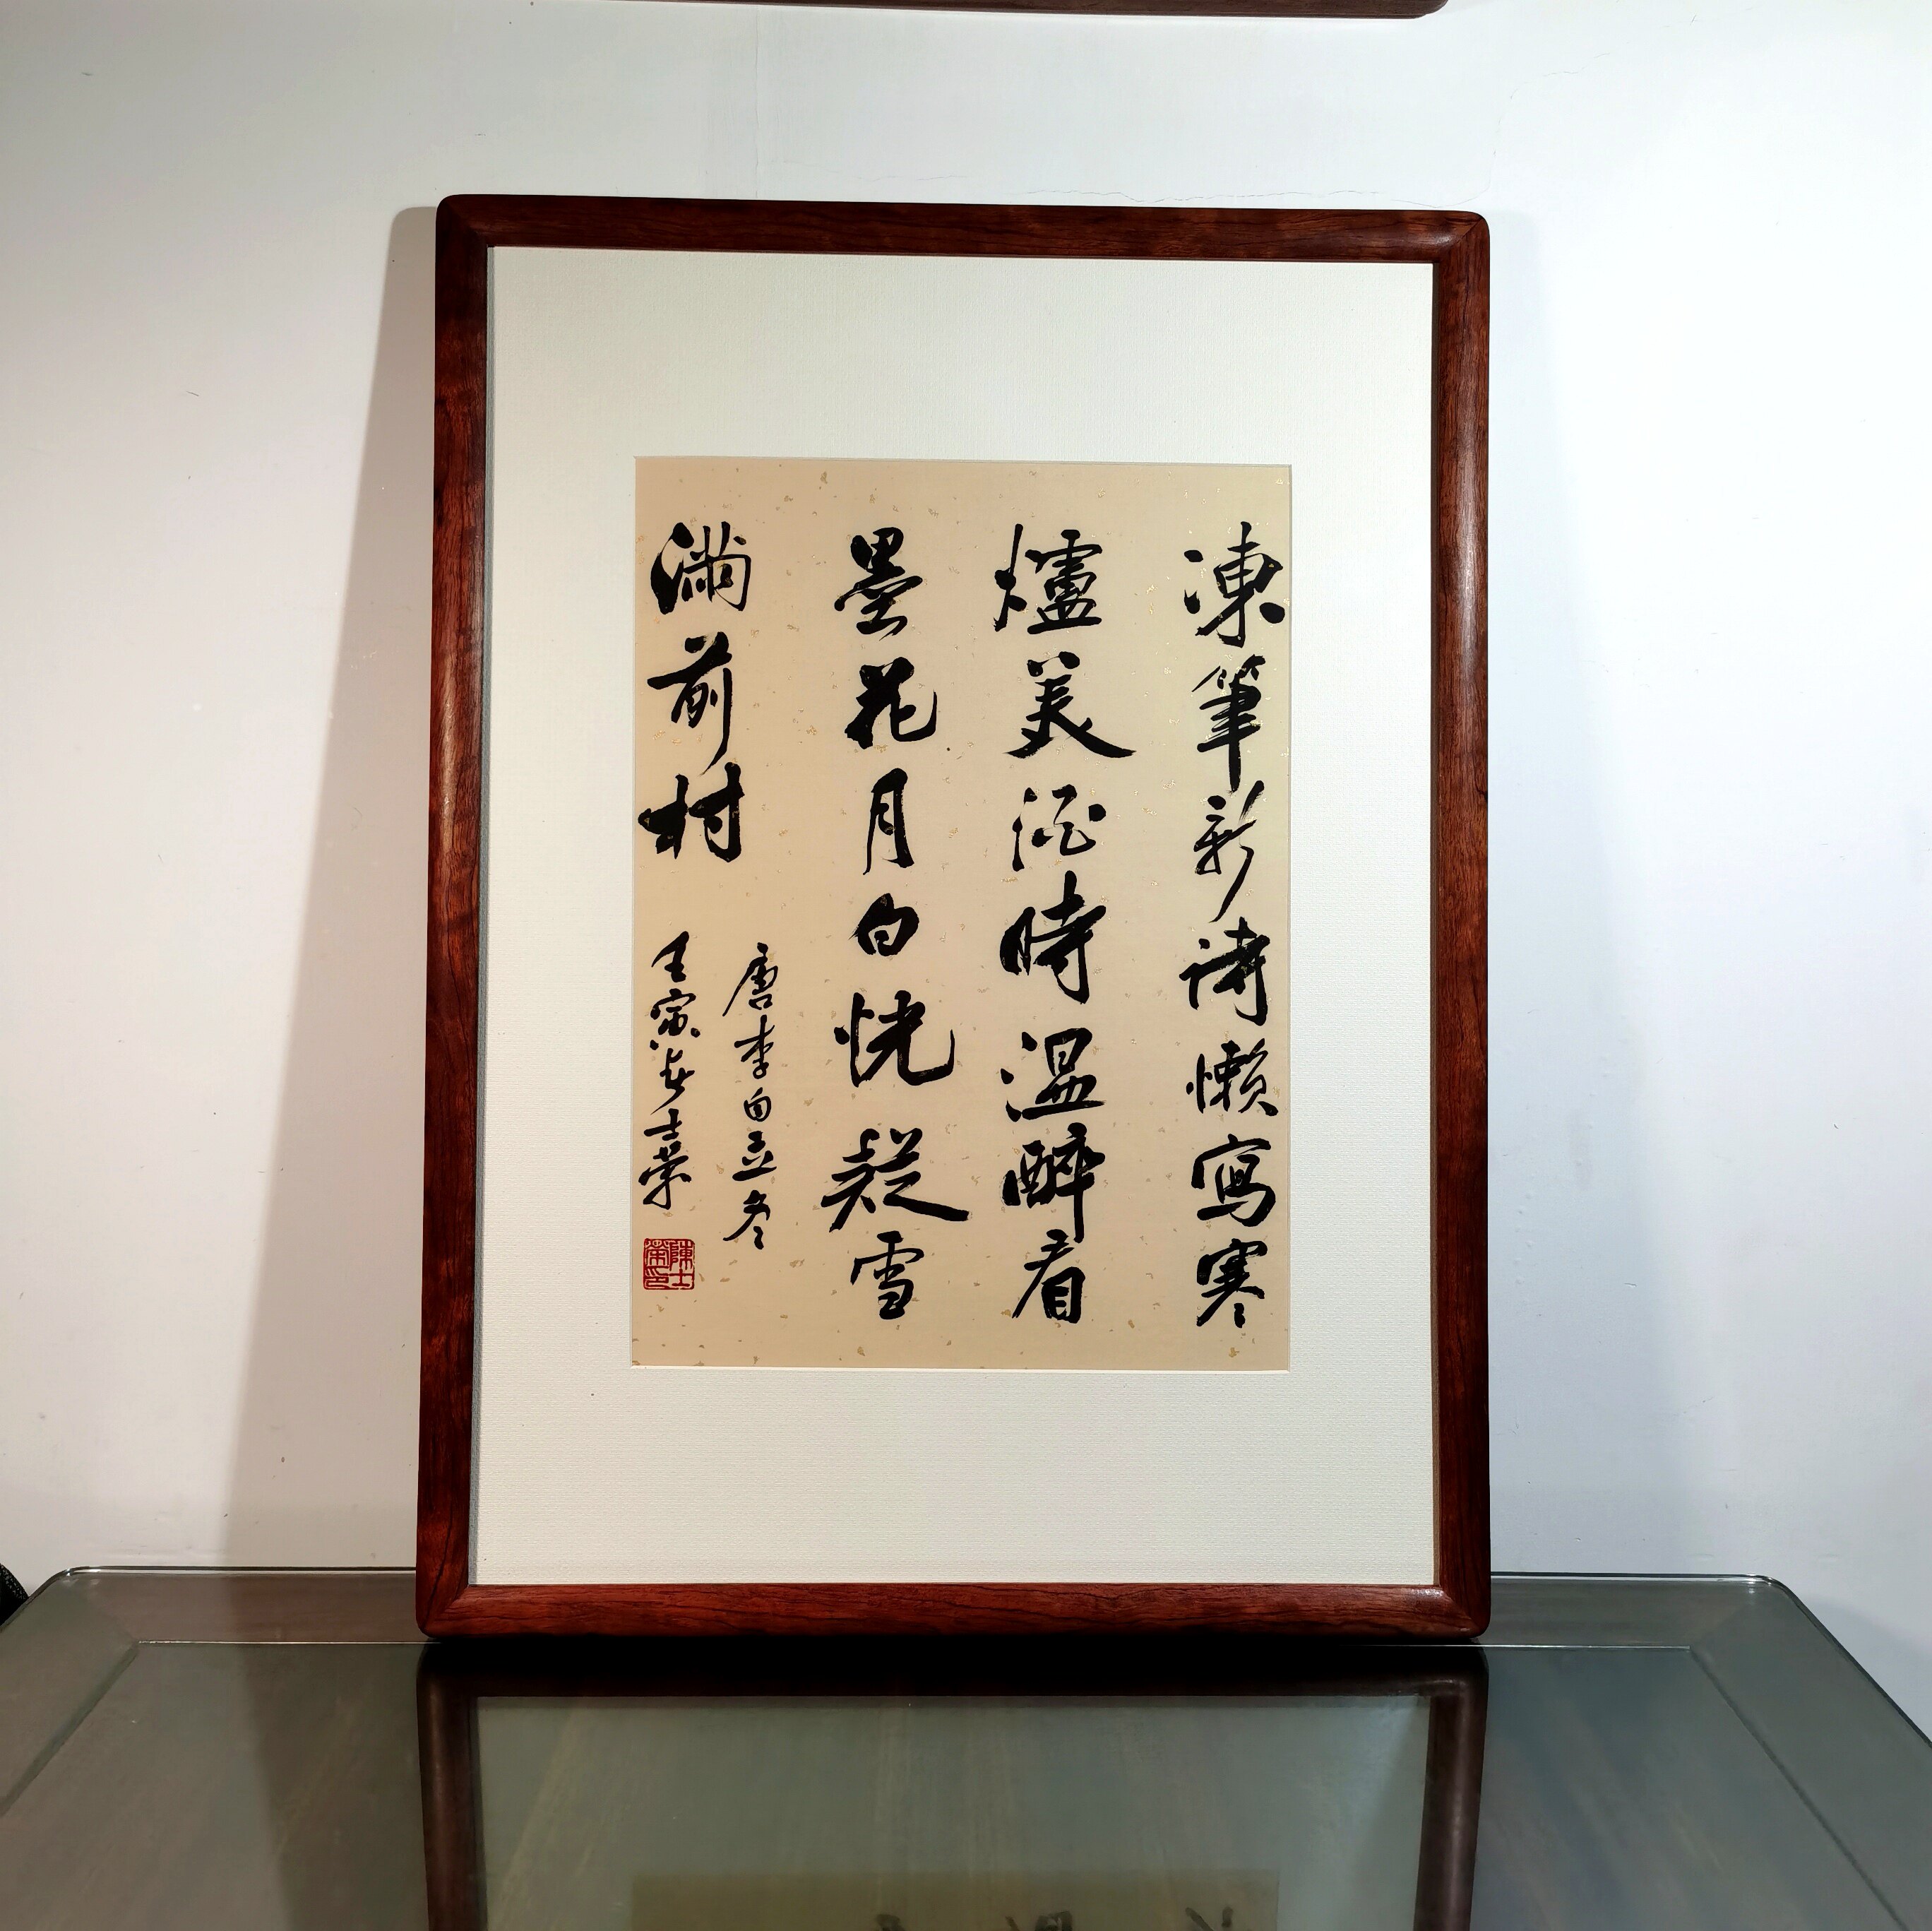 凍筆新詩懶寫寒
爐美酒時温醉看
墨花月白恍疑雪
滿前村
唐李白立冬
壬寅 士榮
陳士榮印